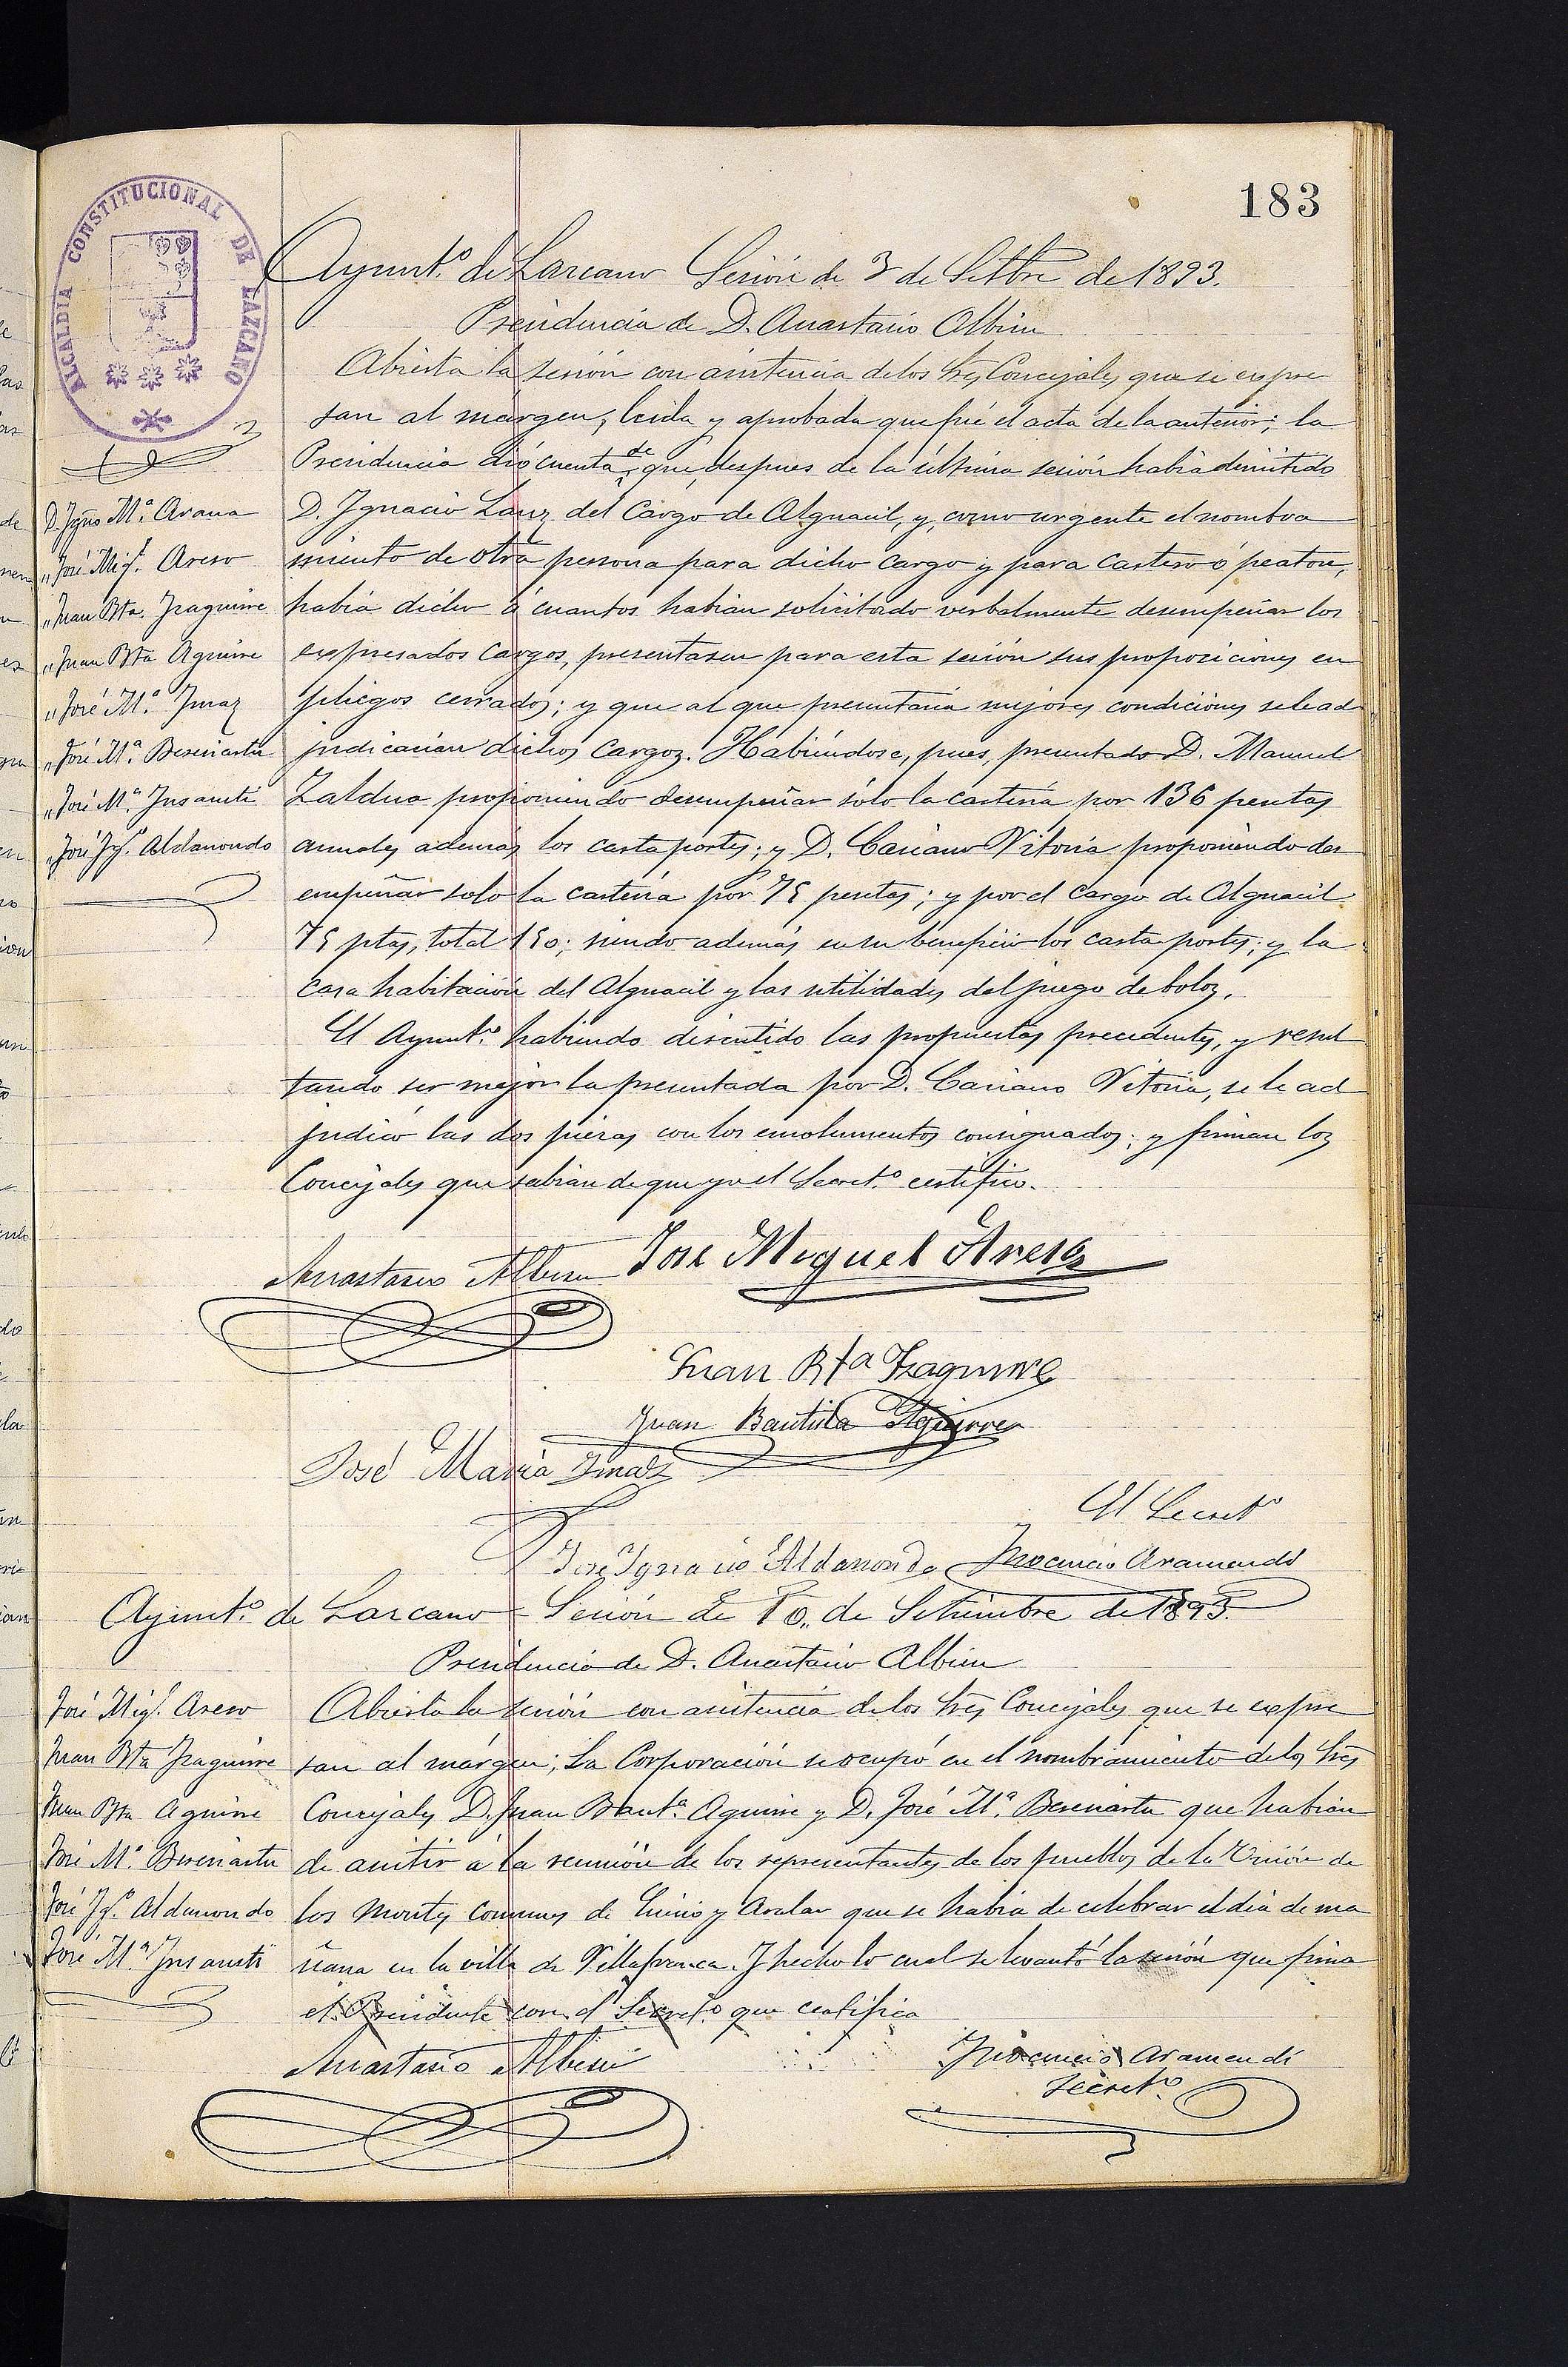 183
ALCALDIA CONSTITUCIONAL DE LAZCANO
Ayunt.º de Lazcano Sesión de 3 de Settbre de 1893.
Presidencia de D. Anastasio Albisu
Abierta la sesión con asistencia de los Sres Concejales que se expre
san al márgen; leida y aprobada que fué el acta de la anterior; la
Presidencia dió cuenta de que, despues de la última sesión habia dimitido
D. Ignacio Sanz del Cargo de Alguacil, y, como urgente el nombra
miento de otra persona para dicho cargo y para cartero ó peaton,
habia dicho á cuantos habian solicitado verbalmente desempeñar los
expresados cargos, presentasen para esta sesión sus proposiciones en
pliegos cerrados; y que al que presentaria mejores condiciones se le ad
judicarian dichos cargos. Habiéndose, pues, presentado D. Manuel
Zaldua proponiendo desempeñar sólo la carteria por 136 pesetas
anuales además los carta portes; y D. Casiano Vitoria proponiendo des
empeñar solo la carteria por 75 pesetas; y por el cargo de Alguacil
75 ptas, total 150; siendo además en su beneficio los carta portes; y la
casa habitación del Alguacil y las utilidades del juego de bolos.
El Ayunt.º habiendo discutido las propuestas precedentes, y resul
tando ser mejor la presentada por D. Casiano Vitoria, se le ad
judicó las dos piezas con los emolumentos consignados; y firman los
Concejales que sabian de que yo el Secret.º certifico.
D. Igno M.ª Arana
" José Mig.l Areso
" Juan Bta. Izaguirre
" Juan Bta Aguirre
" José M.ª Imaz
" José M.ª Beseriartu
" José M.ª Insausti
" José Ig.º Aldanondo
Anastasio Albisu José Miguel Areso
Juan Bta Izaguirre
Juan Bautista Aguirre
José María Imaz
El Secret.º
José Ignacio Aldanondo Inocencio Aramendi
Ayunt.º de Lazcano = Sesión de 10,, de Setiembre de 1893.
Presidencia de D. Anastasio Albisu
Abierta la sesión con asistencia de los Sres Concejales que se expre
san al márgen; La Corporación se ocupó en el nombramiento de los Sres
Concejales D. Juan Baut.ª Aguirre y D. José M.ª Beseriartu que habian
de asistir á la reunión de los representantes de los pueblos de la Unión de
los Montes comunes de Enirio y Aralar que se habia de celebrar el dia de ma
ñana en la villa de Villafranca. Y hecho lo cual se levantó la sesión que firma
el Presidente con el Secret.º que certifica
José Mig.l Areso
Juan Bta Izaguirre
Juan Bta Aguirre
José M.ª Beseriartu
José Ig.º Aldanondo
José M.ª Insausti
Anastasio Albisu Inocencio Aramendi
Secret.º